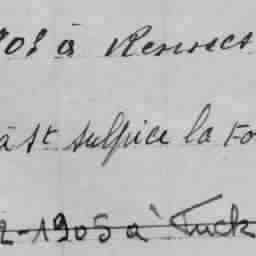 908 à Rennes
à St Sulpice la Fo
2-1905 à Tuck